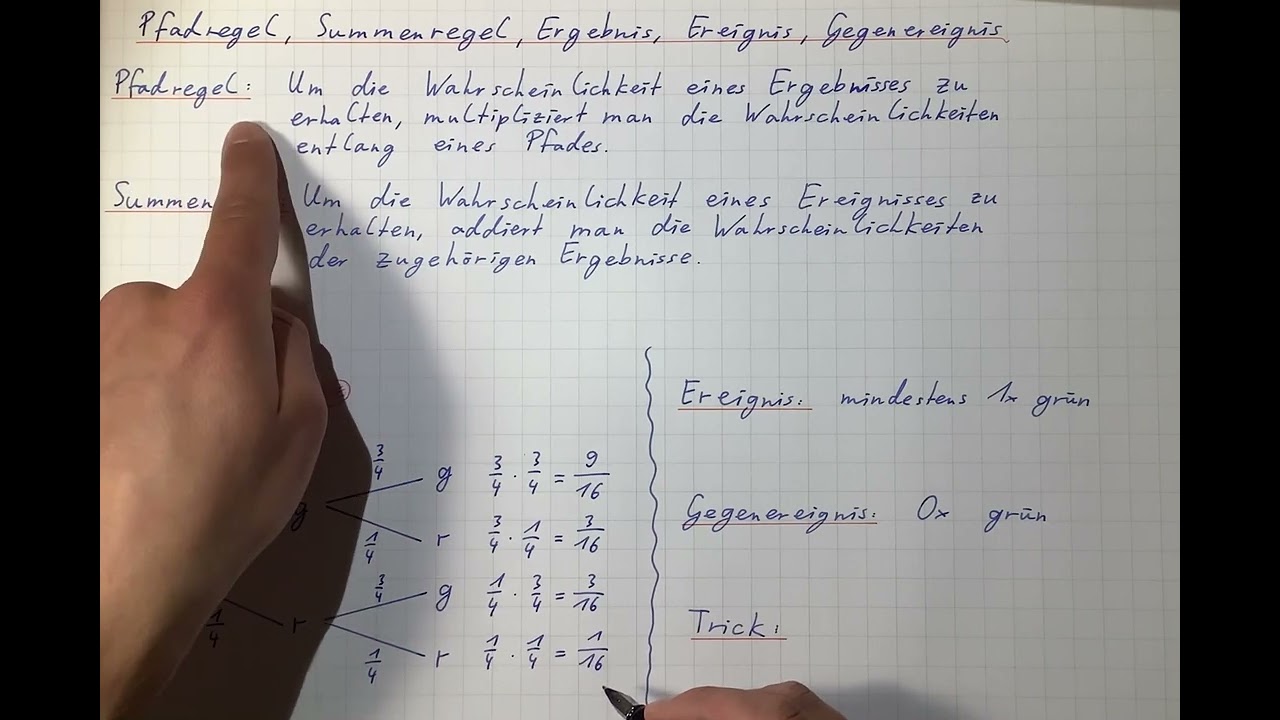 Pfadregel, Summenregel, Ergebnis, Ereignis, Gegenereignis
Pfadregel: Um die Wahrscheinlichkeit eines Ergebnisses zu
erhalten, multipliziert man die Wahrscheinlichkeiten
entlang eines Pfades.
Summen Um die Wahrscheinlichkeit eines Ereignisses zu
erhalten, addiert man die Wahrscheinlichkeiten
der zugehörigen Ergebnisse.
Ereignis: mindestens 1x grün
3/4 g 3/4 · 3/4 = 9/16
g
1/4 r 3/4 · 1/4 = 3/16
Gegenereignis: 0x grün
3/4 g 1/4 · 3/4 = 3/16
1/4 r
1/4 r 1/4 · 1/4 = 1/16
Trick: